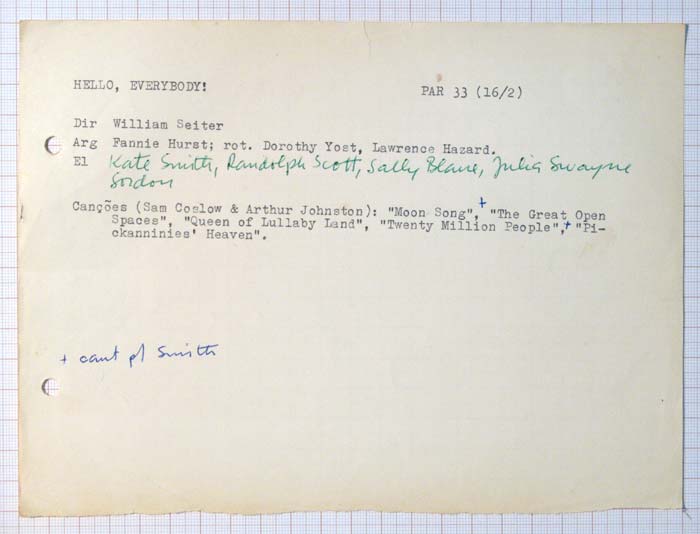 HELLO, EVERYBODY!
PAR 33 (16/2)
Dir William Seiter
Arg Fannie Hurst; rot. Dorothy Yost, Lawrence Hazard.
El Kate Smith, Randolph Scott, Sally Blane, Julia Swayne
Gordon
Canções (Sam Coslow & Arthur Johnston): "Moon Song",+ "The Great Open
Spaces", "Queen of Lullaby Land", "Twenty Million People",+ "Pi-
ckanninies' Heaven".
+ cant p/ Smith